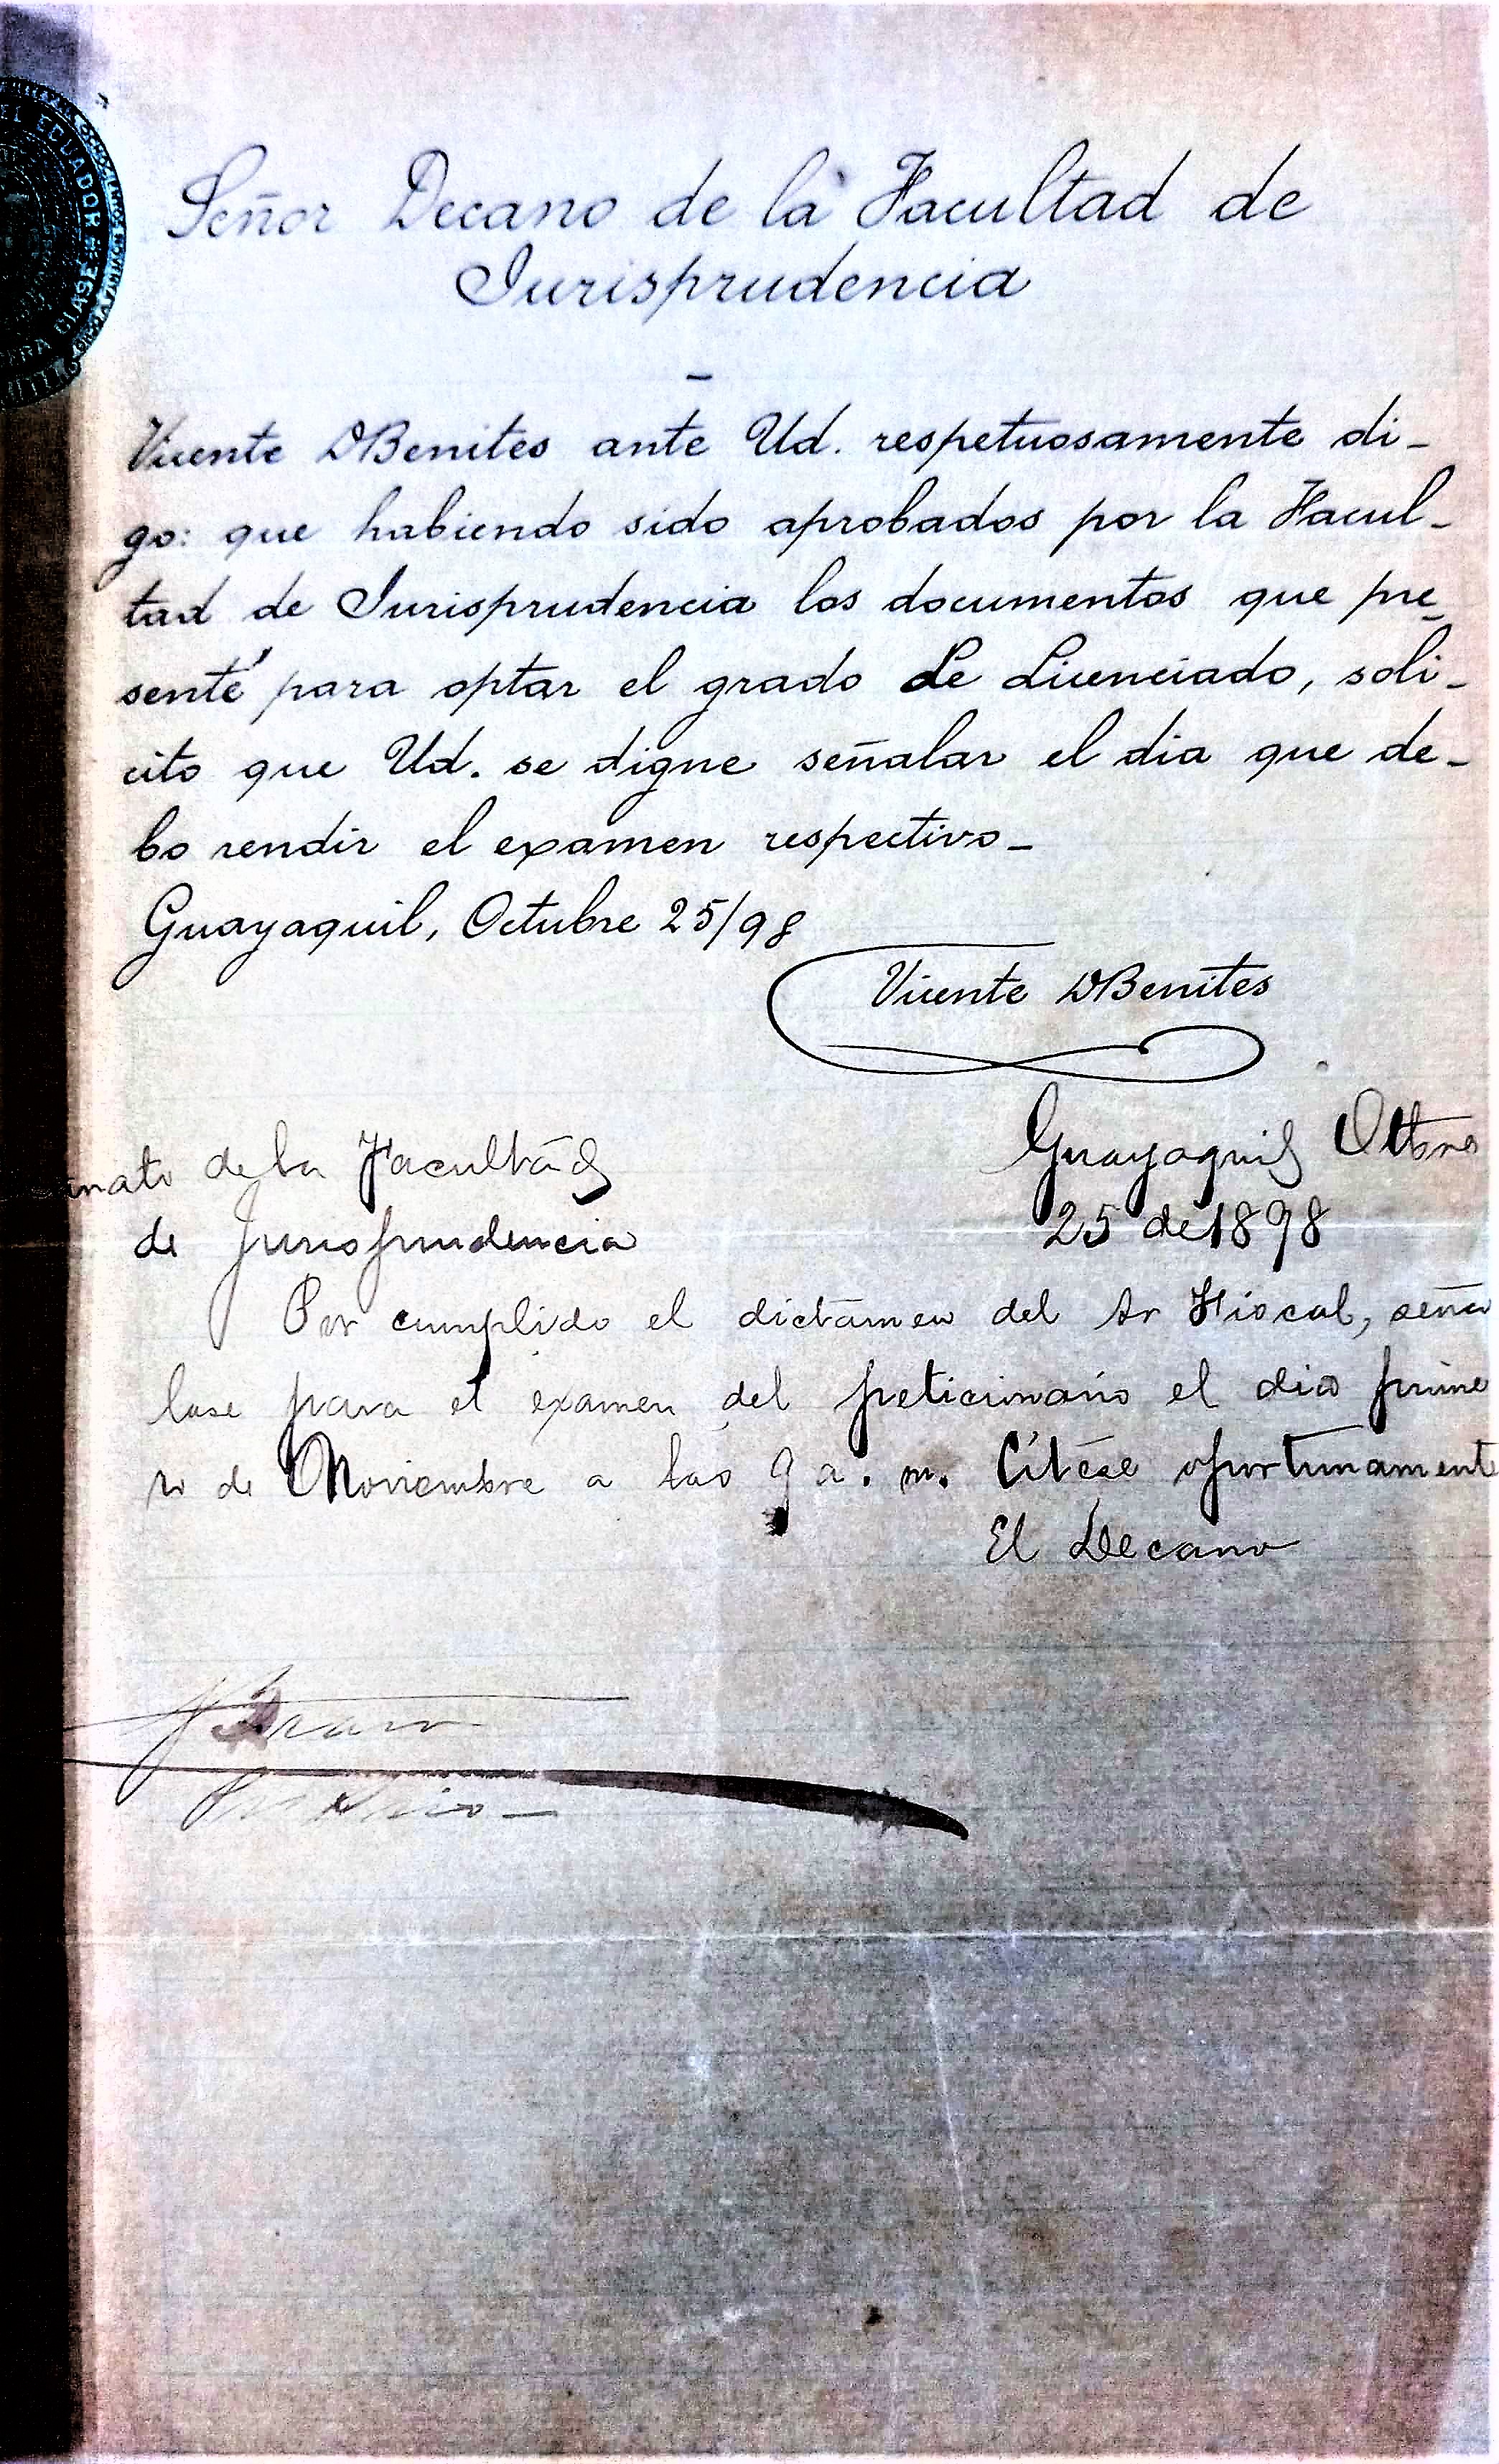 EL ECUADOR
CLASE
Señor Decano de la Facultad de
Jurisprudencia
Vicente DBenites ante Ud. respetuosamente di-
go: que habiendo sido aprobados por la Facul-
tad de Jurisprudencia los documentos que pre-
senté para optar el grado de Licenciado, soli-
cito que Ud. se digne señalar el dia que de-
bo rendir el examen respectivo-
Guayaquil, Octubre 25/98
Vicente DBenites
nato de la Facultad
de Jurisprudencia
Guayaquil
25 de 1898
Por cumplido el dictamen del Sr Fiscal, seña
lase para el examen del peticionario el dia prime
ro de Noviembre a las 9 a. m. Cítese oportunamente
El Decano